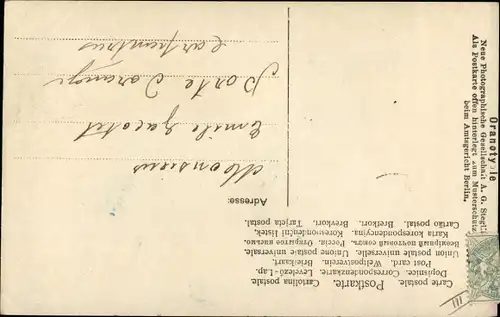 Carte postale. Postkarte. Cartolina postale.
Dopisnice. Correspondenzkarte. Levelező-Lap.
Post card. Weltpostverein. Briefkaart.
Union postale universelle. Unione postale universale.
Karta korespondencyjna. Korespondenční lístek.
Cartão postal. Brefkort. Brevkort. Tarjeta postal.
Adresse:
Monsieur
Emile Jacotet
Porte d'orange
Carpentras
Oranotypie
Neue Photographische Gesellschaft A. G. Steglitz
Als Postkarte offen hinterlegt zum Musterschutz
beim Amtsgericht Berlin.
III